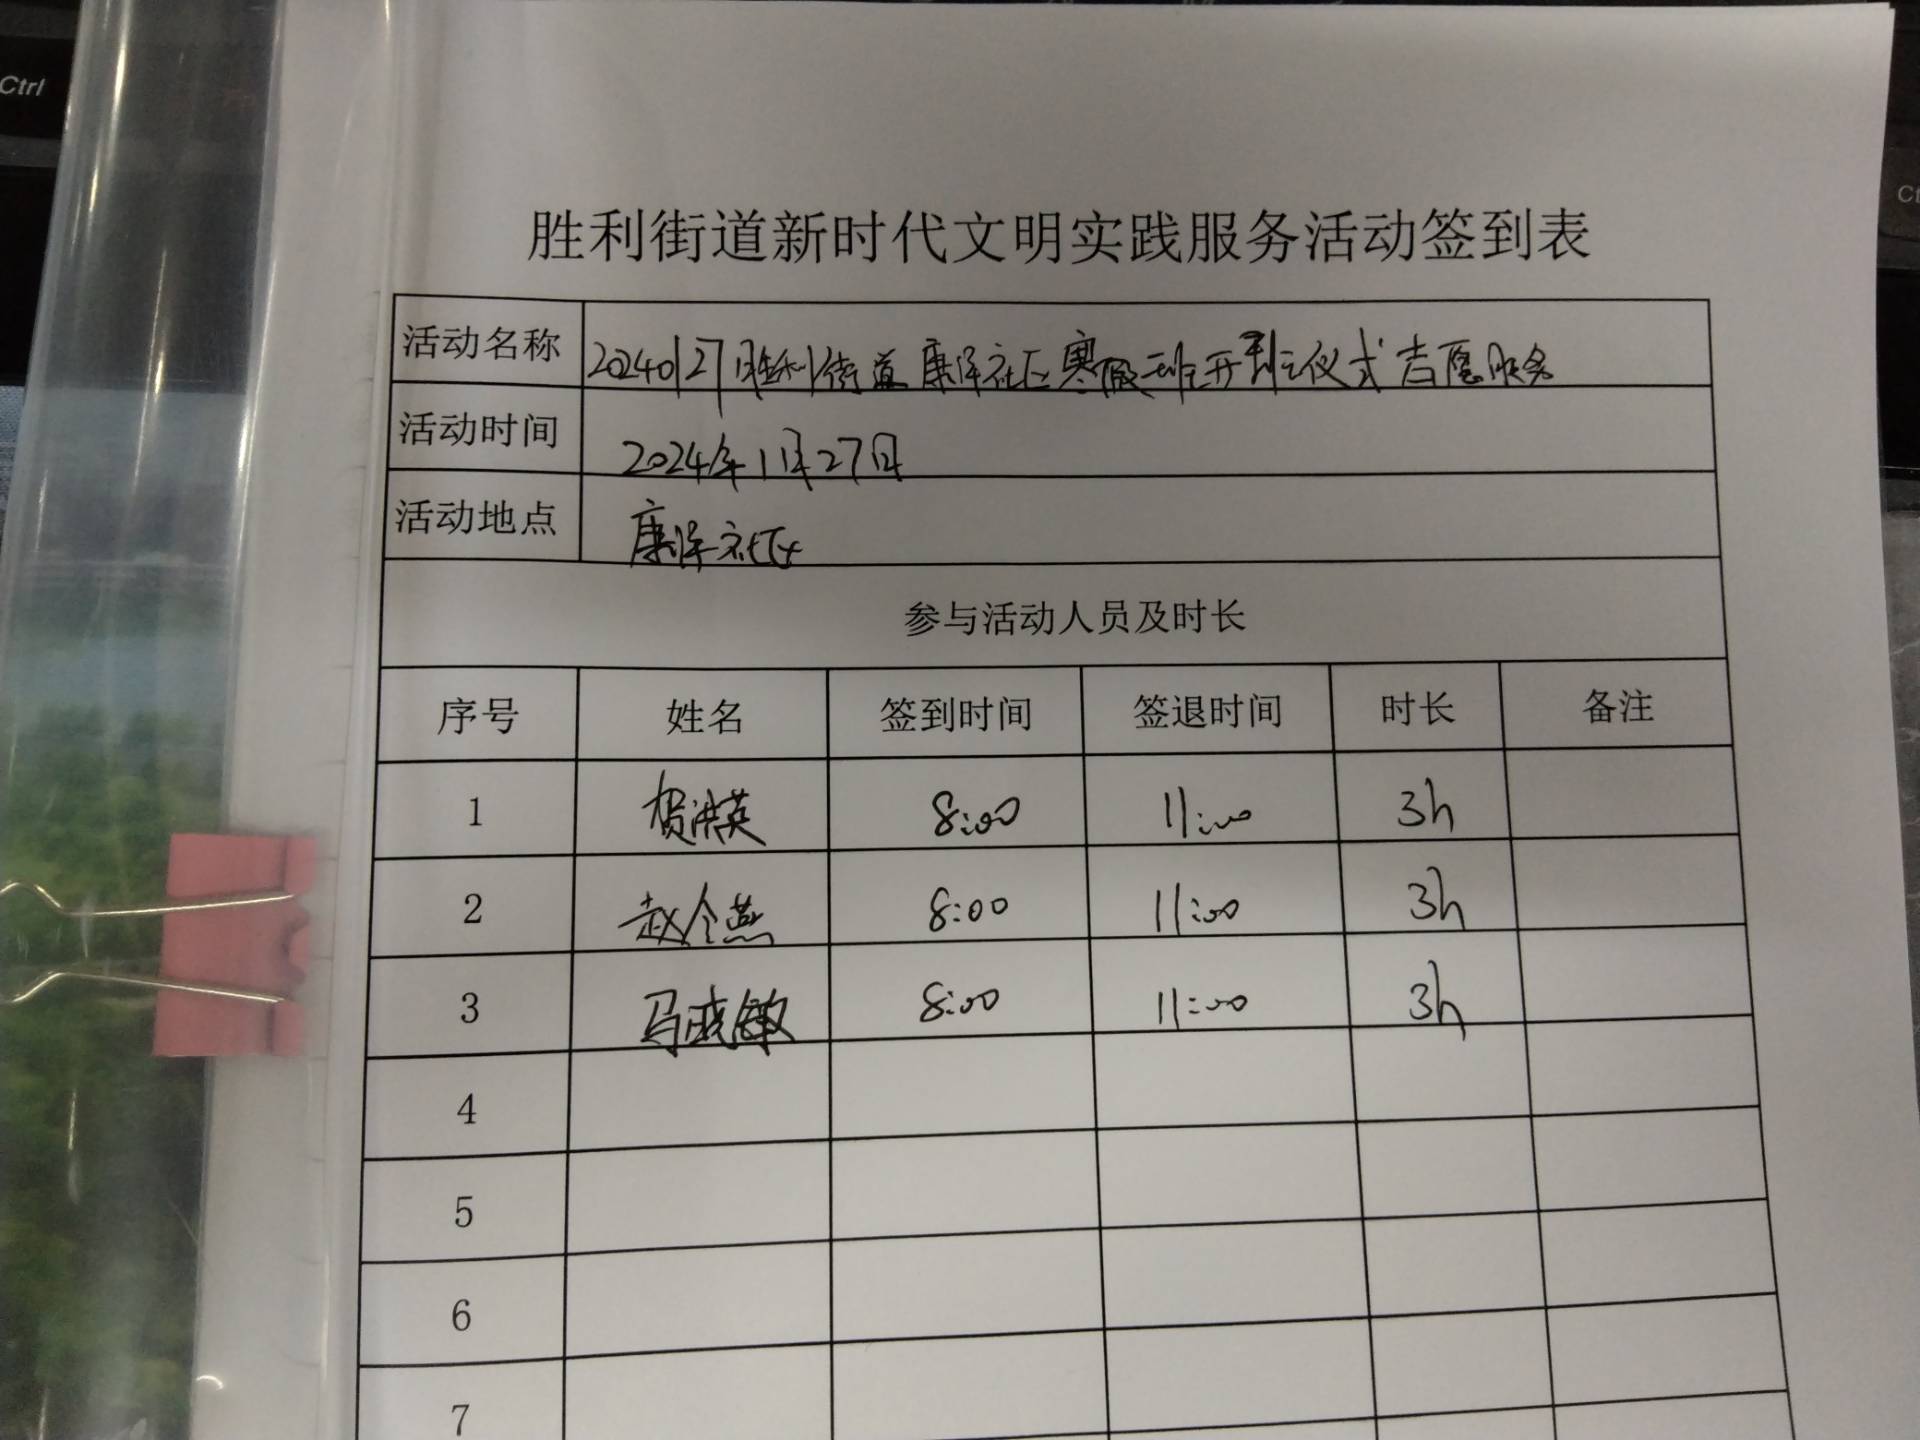 Ctrl
胜利街道新时代文明实践服务活动签到表
活动名称 20240127胜利街道康泽社区寒假班开班仪式志愿服务
活动时间 2024年1月27日
活动地点 康泽社区
参与活动人员及时长
序号 姓名 签到时间 签退时间 时长 备注
1 贺洪英 8:00 11:00 3h
2 赵令燕 8:00 11:00 3h
3 马晓敏 8:00 11:00 3h
4
5
6
7